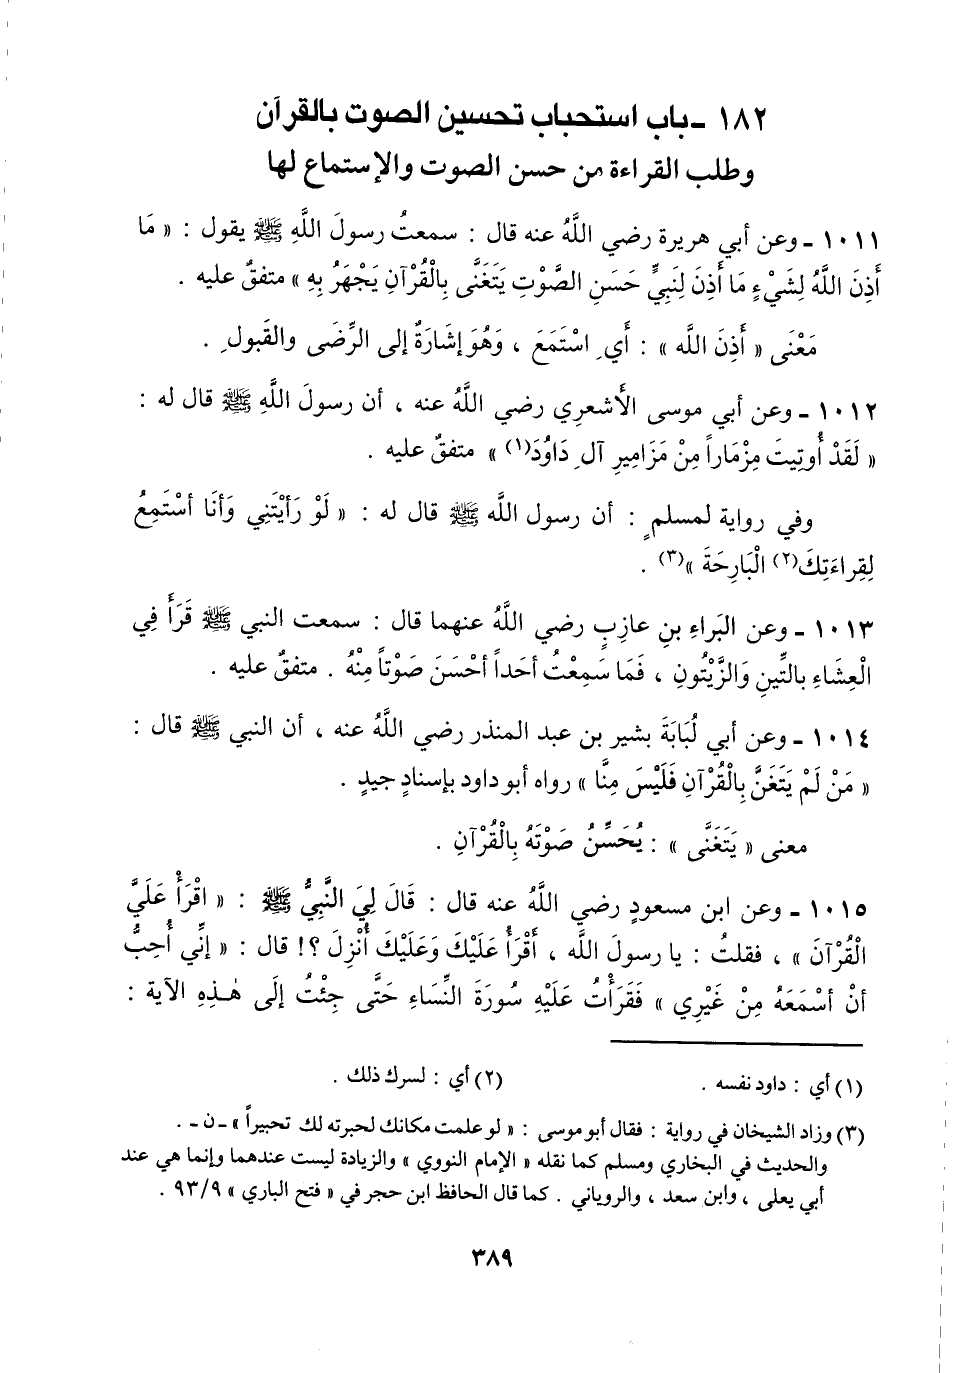 ١٨٢ ـ باب استحباب تحسين الصوت بالقرآن
وطلب القراءة من حسن الصوت والإستماع لها
١٠١١ ـ وعن أبي هريرة رضي اللَّهُ عنه قال : سمعتُ رسولَ اللَّهِ ﷺ يقول : « مَا
أَذِنَ اللَّهُ لِشَيْءٍ مَا أَذِنَ لِنَبِيٍّ حَسَنِ الصَّوْتِ يَتَغَنَّى بِالْقُرْآنِ يَجْهَرُ بِهِ » متفقٌ عليه .
مَعْنَى « أَذِنَ اللَّه » : أَي اسْتَمَعَ ، وَهُوَ إشَارَةٌ إلى الرِّضَى والقَبولِ .
١٠١٢ ـ وعن أبي موسى الأَشعرِي رضي اللَّهُ عنه ، أن رسولَ اللَّهِ ﷺ قال له :
« لَقَدْ أُوتِيتَ مِزْمَاراً مِنْ مَزَامِيرِ آلِ دَاوُدَ(١) » متفقٌ عليه .
وفي رواية لمسلمٍ : أن رسول اللَّه ﷺ قال له : « لَوْ رَأيْتَنِي وَأنَا أسْتَمِعُ
لِقِراءَتِكَ(٢) الْبَارِحَةَ »(٣) .
١٠١٣ ـ وعن البَراءِ بنِ عازِبٍ رضي اللَّهُ عنهما قال : سمعت النبي ﷺ قَرَأَ فِي
الْعِشَاءِ بالتِّينِ وَالزَّيْتُونِ ، فَمَا سَمِعْتُ أحَداً أحْسَنَ صَوْتاً مِنْهُ . متفقٌ عليه .
١٠١٤ ـ وعن أبي لُبَابَةَ بشير بن عبد المنذر رضي اللَّهُ عنه ، أن النبي ﷺ قال :
« مَنْ لَمْ يَتَغَنَّ بِالْقُرْآنِ فَلَيْسَ مِنَّا » رواه أبو داود بإسنادٍ جيدٍ .
معنى « يَتَغَنَّى » : يُحَسِّنُ صَوْتَهُ بِالْقُرْآنِ .
١٠١٥ ـ وعن ابن مسعودٍ رضي اللَّهُ عنه قال : قَالَ لِيَ النَّبِيُّ ﷺ : « اقْرَأْ عَلَيَّ
الْقُرْآنَ » ، فقلتُ : يا رسولَ اللَّه ، أَقْرَأُ عَلَيْكَ وَعَلَيْكَ أُنْزِلَ ؟! قال : « إنِّي أُحِبُّ
أنْ أسْمَعَهُ مِنْ غَيْرِي » فَقَرَأْتُ عَلَيْهِ سُورَةَ النِّسَاءِ حَتَّى جِئْتُ إلَى هٰـذِهِ الآية :
(١) أي : داود نفسه . (٢) أي : لسرك ذلك .
(٣) وزاد الشيخان في رواية : فقال أبو موسى : « لو علمت مكانك لحبرته لك تحبيراً » ـ ن ـ .
والحديث في البخاري ومسلم كما نقله « الإمام النووي » والزيادة ليست عندهما وإنما هي عند
أبي يعلى ، وابن سعد ، والروياني . كما قال الحافظ ابن حجر في « فتح الباري » ٩٣/٩ .
٣٨٩